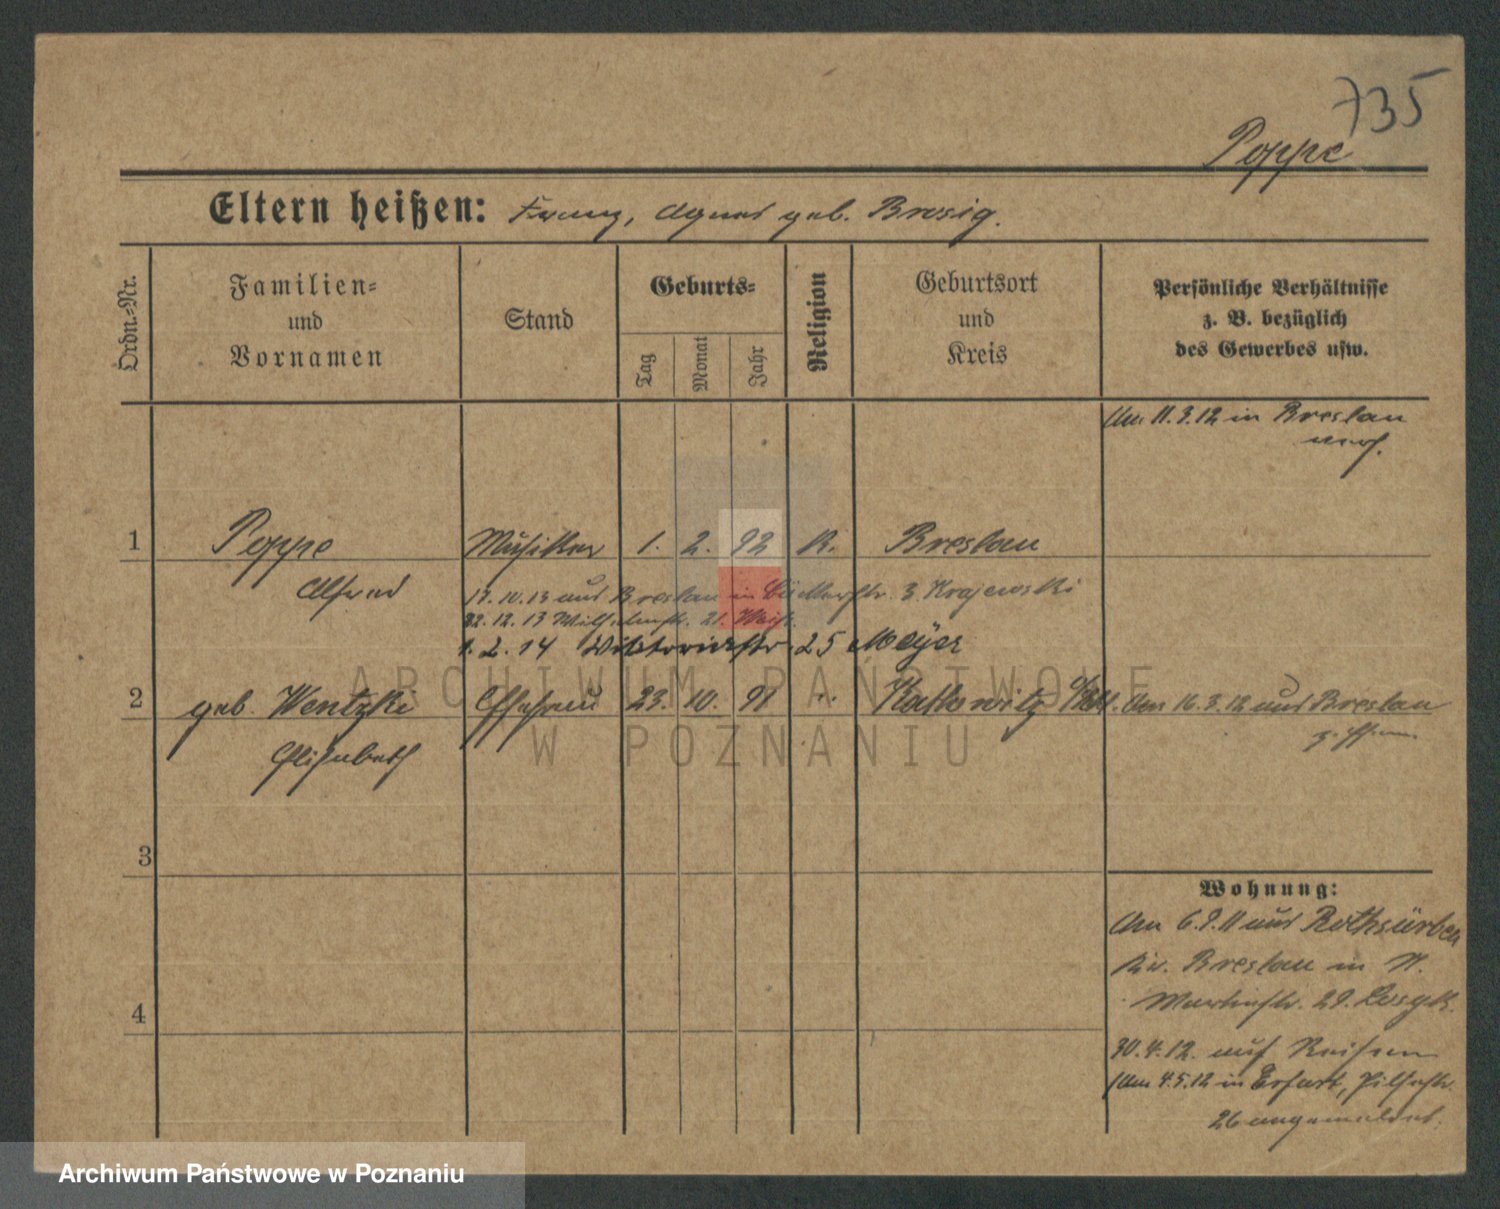 735
Poppe
Eltern heißen: Franz, Agnes geb. Brosig.
Ordn.-Nr.
Familien-
und
Vornamen
Stand
Geburts-
Tag
Monat
Jahr
Religion
Geburtsort
und
Kreis
Persönliche Verhältnisse
z. B. bezüglich
des Gewerbes usw.
Am 11.3.12 in Breslau
1 Poppe Musiker 1. 2. 92 K. Breslau
Alfred
17.10.13 aus Breslau in Bäckerstr. 3 Krajewski
22.12.13 Wilhelmstr. 21.
1.2.14 Viktoriastr. 25 Meyer
2 geb. Wentzki Ehefrau 23. 10. 91 " Kattowitz
Am 16.3.12 aus Breslau
Elisabeth
3
4
Wohnung:
Am 6.9.11 aus Rothsürben
Kr. Breslau in St.
Martinstr. 29.
30.4.12. auf Reisen
Am 4.5.12 in Erfurt,
26 angemeldet.
ARCHIWUM PAŃSTWOWE
W POZNANIU
Archiwum Państwowe w Poznaniu